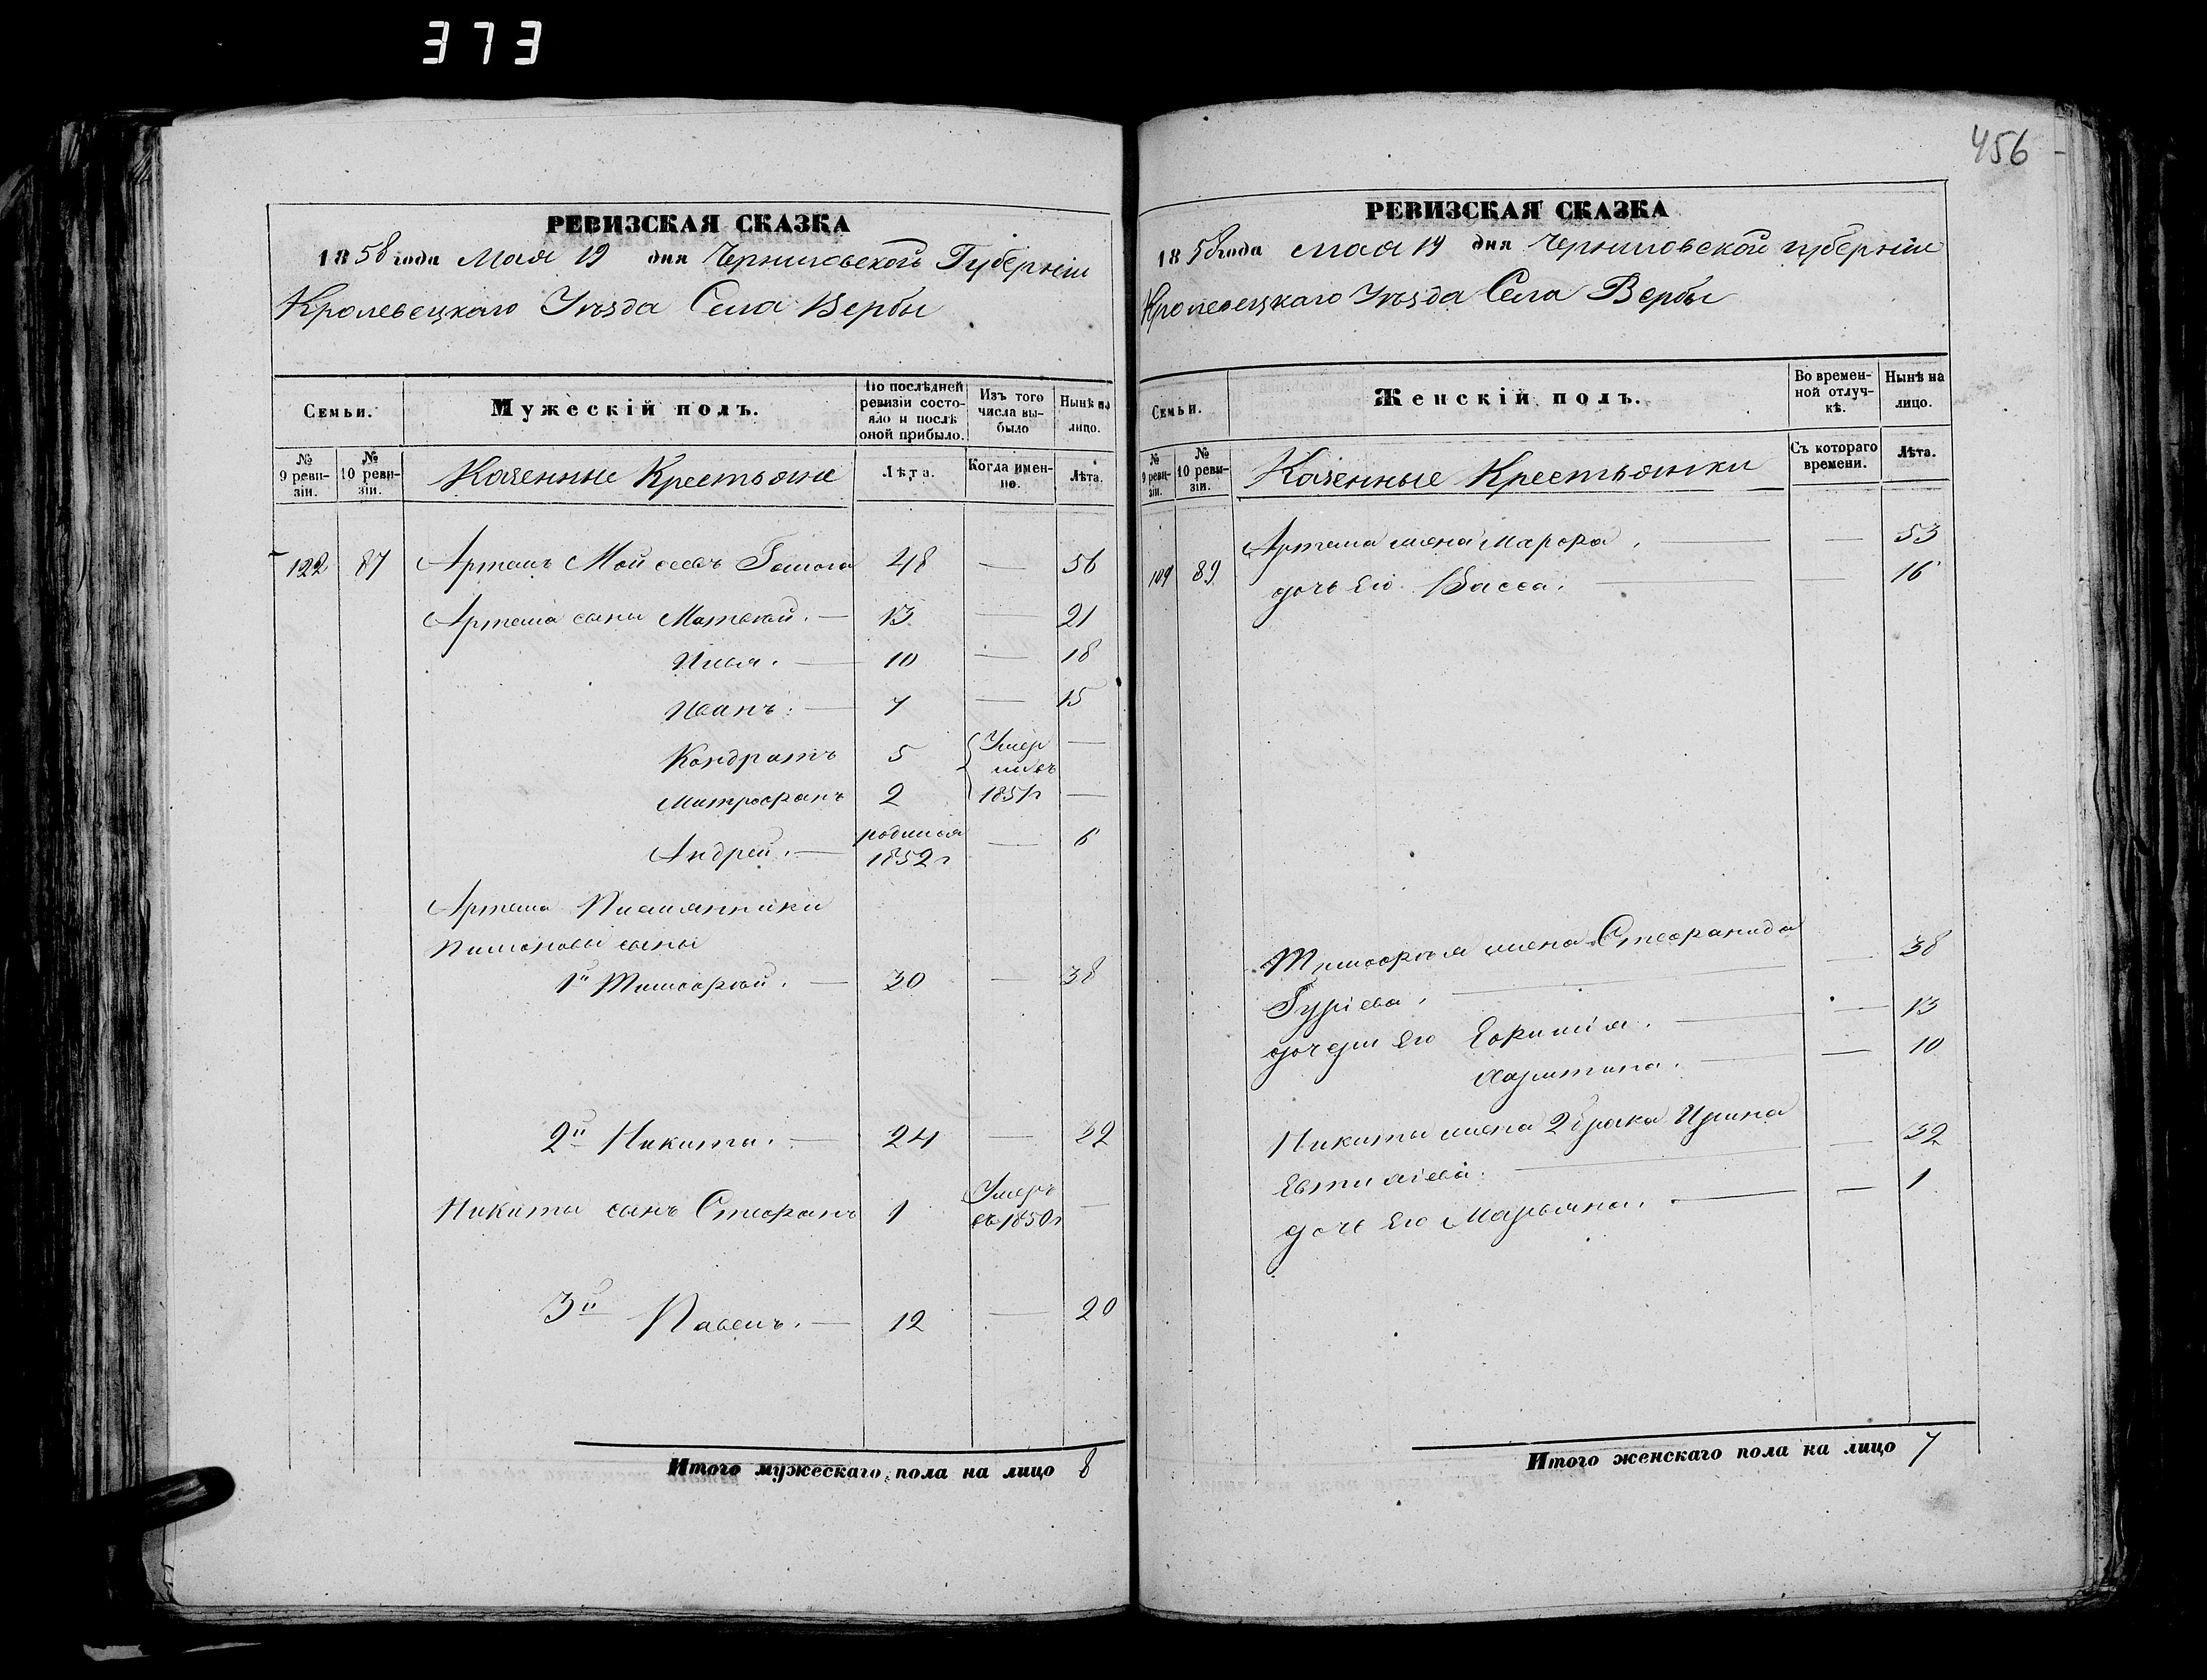 373
456
РЕВИЗСКАЯ СКАЗКА
1858 года Мая 19 дня Черниговской Губерніи
Кролевецкаго Уѣзда Села Вербы
Семьи.
Мужескій полъ.
По послѣдней ревизіи состояло и послѣ оной прибыло.
Изъ того числа выбыло
Нынѣ на лицо.
№ 9 ревизіи.
№ 10 ревизіи.
Казенные Крестьяне
Лѣта.
Когда именно.
Лѣта.
122 87 Артемъ Мойсеевъ 48 — 56
Артема сыны Матвѣй. — 13 — 21
Илья. — 10 — 18
Иванъ. — 7 — 15
Кондратъ 5 Умер —
ли въ
Митрофанъ 2 1851г —
Андрей. — родился — 6
1852г
Артема Племянники
Пименовы сыны
1й Тимофей. — 30 — 38
2й Никита. — 24 — 32
Никиты сынъ Стефанъ 1 Умеръ —
въ 1850г
3й Павелъ. — 12 — 20
Итого мужескаго пола на лицо 8
РЕВИЗСКАЯ СКАЗКА
1858 года мая 19 дня Черниговской губерніи
Кролевецкаго Уѣзда Села Вербы
Семьи.
Женскій полъ.
Во временной отлучкѣ.
Нынѣ на лицо.
№ 9 ревизіи.
№ 10 ревизіи.
Казенные Крестьянки
Съ котораго времени.
Лѣта.
Артема жена Марфа. — — 53
109 89 дочь его Васса. — — 16
Тимофея жена Стефанида
Гуріева. — — 38
дочери его Евфимія. — — 13
Харитина. — — 10
Никиты жена 2 брака Ирина
— 32
дочь его Марьяна. — — 1
Итого женскаго пола на лицо 7